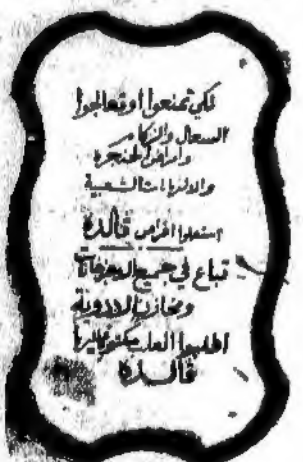 لكي تمنعوا او تعالجوا
السعال والزكام
وامراض الحنجرة
والالتهابات الشعبية
استعملوا اقراص ڤالدا
تباع في جميع الاجزخانات
ومخازن الادوية
اطلبوا العلب مكتوب عليها
ڤالدا